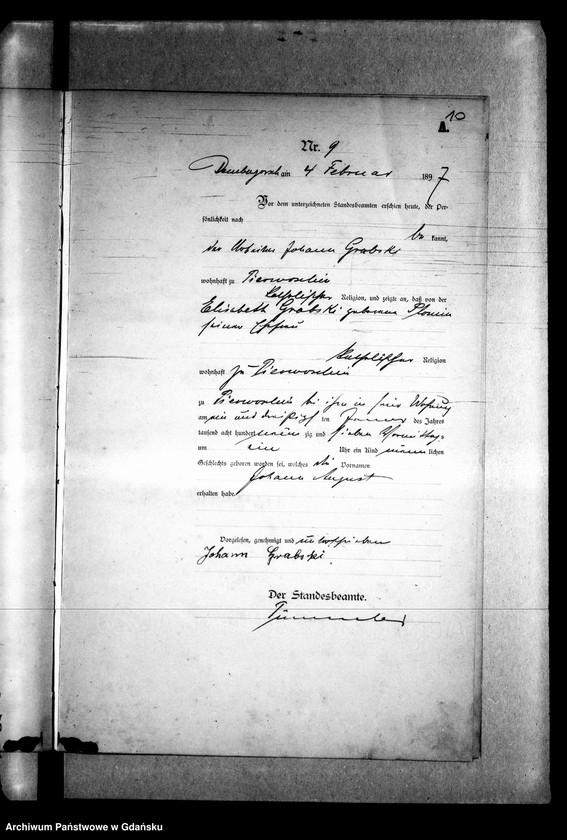 10
A.
Nr. 9
Dembogorsch am 4 Februar 1897
Vor dem unterzeichneten Standesbeamten erschien heute, der Per-
sönlichkeit nach
be kannt,
der Arbeiter Johann Grabski
wohnhaft zu Pierwoschin
katholischer Religion, und zeigte an, daß von der
Elisabeth Grabski geborene
seiner Ehefrau
katholischer Religion
wohnhaft zu Pierwoschin
zu Pierwoschin bei ihm in seiner Wohnung
am ein und dreißigsten Januar des Jahres
tausend acht hundert neun zig und sieben Vormittags
um ein Uhr ein Kind männlichen
Geschlechts geboren worden sei, welches die Vornamen
Johann August
erhalten habe.
Vorgelesen, genehmigt und unterschrieben
Johann Grabski.
Der Standesbeamte.
Archiwum Państwowe w Gdańsku